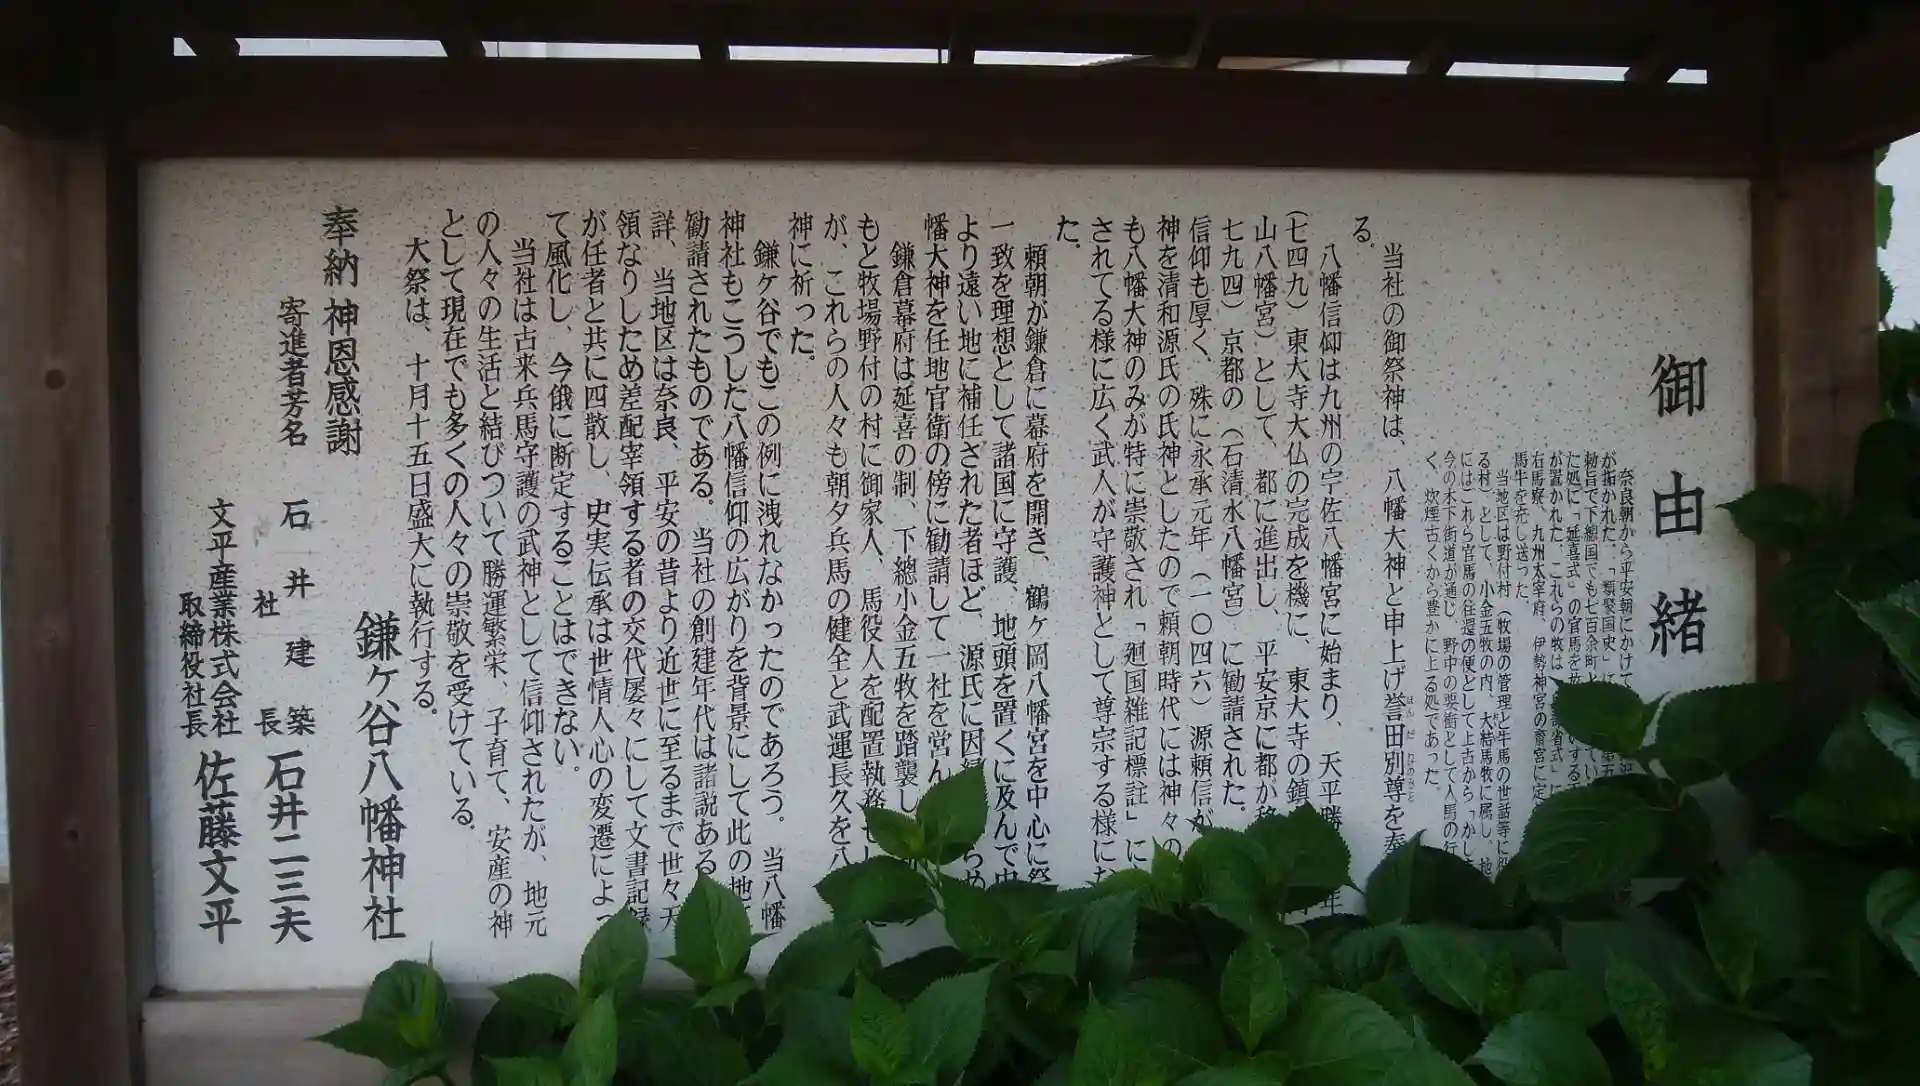 御由緒
奈良朝から平安朝にかけて
が拓かれた。「類聚国史」に
勅旨で下總国でも七百余町と
た処に「延喜式」の官馬を放
が置かれた。これらの牧は
右馬寮、九州太宰府、伊勢神宮の齋宮に定
馬牛を充し送った。
当地区は野付村(牧場の管理と牛馬の世話等に役
る村)として、小金五牧の内、大結馬牧に属し、地
にはこれら官馬の往還の便として上古から「かし
今の木下街道が通じ、野中の要衝として人馬の行
く、炊煙古くから豊かに上る処であった。
当社の御祭神は、八幡大神と申上げ誉田別尊を奉
る。
八幡信仰は九州の宇佐八幡宮に始まり、天平勝 年
(七四九)東大寺大仏の完成を機に、東大寺の鎮
山八幡宮)として、都に進出し、平安京に都が移
七九四)京都の(石清水八幡宮)に勧請された。
信仰も厚く、殊に永承元年(一〇四六)源頼信が
神を清和源氏の氏神としたので頼朝時代には神々の
も八幡大神のみが特に崇敬され「廻国雑記標註」に
されてる様に広く武人が守護神として尊宗する様にな
た。
頼朝が鎌倉に幕府を開き、鶴ヶ岡八幡宮を中心に祭
一致を理想として諸国に守護、地頭を置くに及んで中
より遠い地に補任された者ほど、源氏に因縁
幡大神を任地官衛の傍に勧請して一社を営ん
鎌倉幕府は延喜の制、下總小金五牧を踏襲し
もと牧場野付の村に御家人、馬役人を配置執務せし
が、これらの人々も朝夕兵馬の健全と武運長久を八
神に祈った。
鎌ケ谷でもこの例に洩れなかったのであろう。当八幡
神社もこうした八幡信仰の広がりを背景にして此の地に
勧請されたものである。当社の創建年代は諸説ある
詳、当地区は奈良、平安の昔より近世に至るまで世々天
領なりしため差配宰領する者の交代屡々にして文書記録
が任者と共に四散し、史実伝承は世情人心の変遷によっ
て風化し、今俄に断定することはできない。
当社は古来兵馬守護の武神として信仰されたが、地元
の人々の生活と結びついて勝運繁栄、子育て、安産の神
として現在でも多くの人々の崇敬を受けている。
大祭は、十月十五日盛大に執行する。
鎌ケ谷八幡神社
奉納 神恩感謝
寄進者芳名 石井建築
社長 石井二三夫
文平産業株式会社
取締役社長 佐藤文平